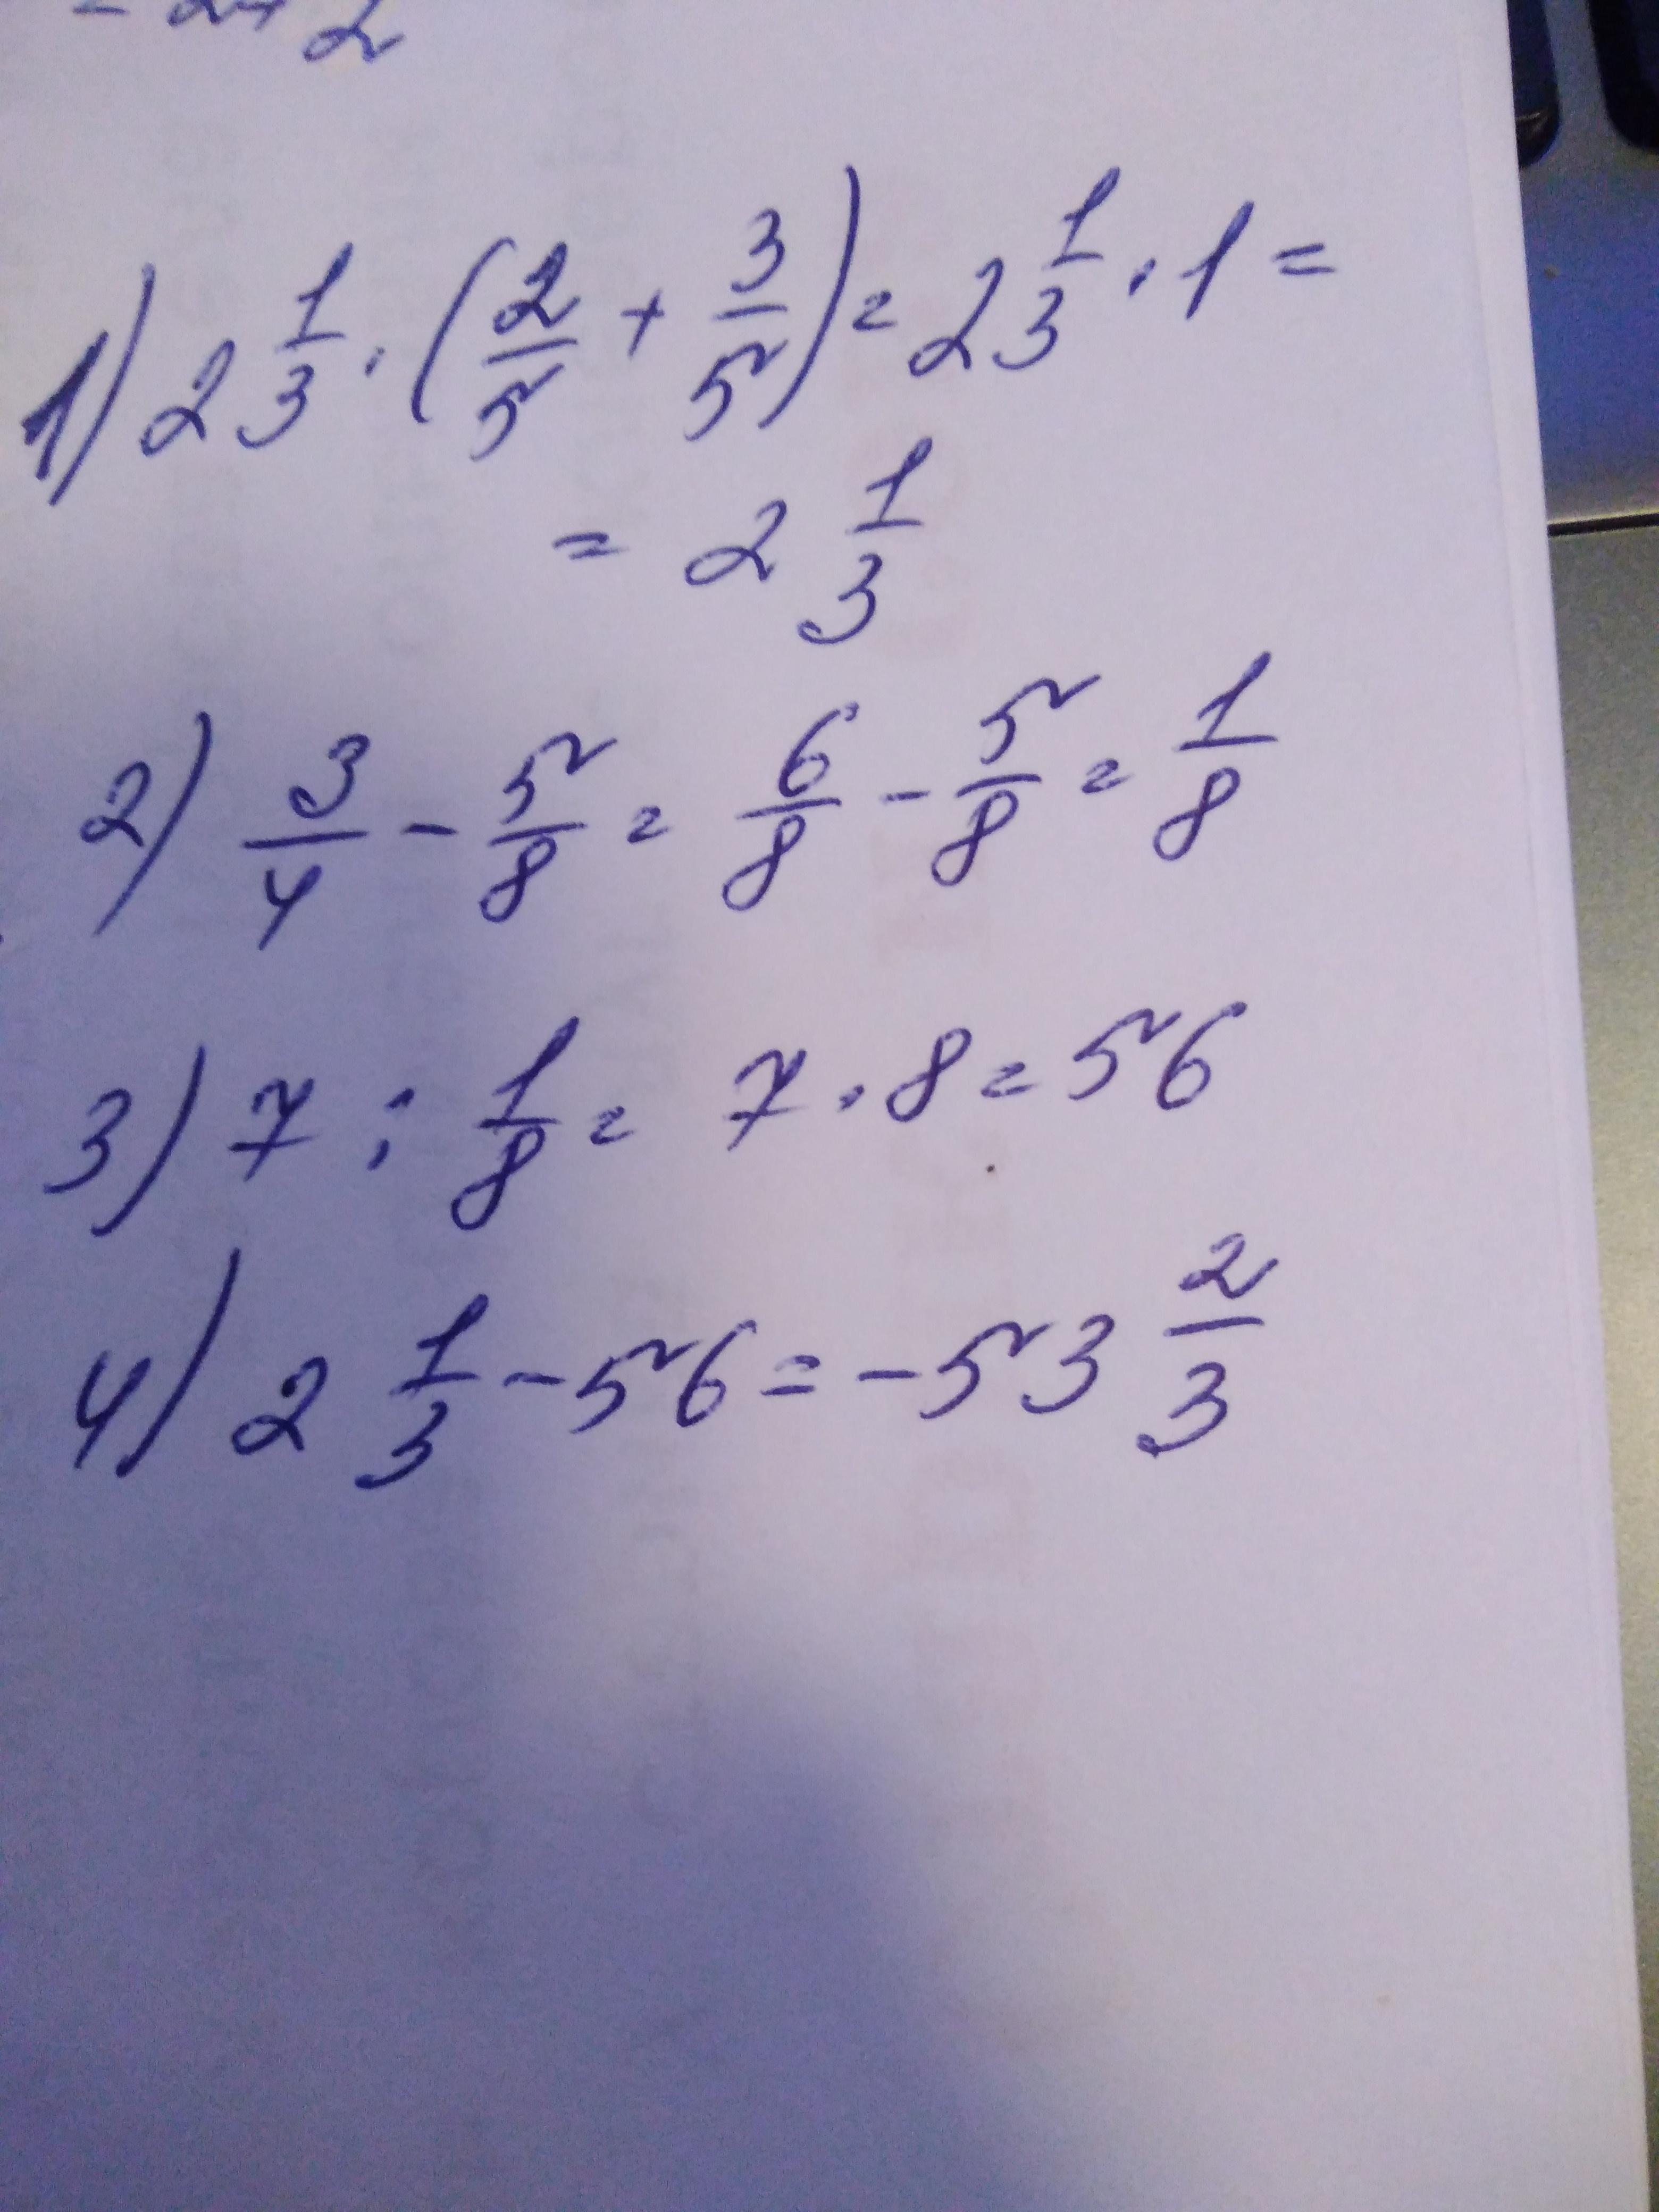 1) 2 1/3 · (2/5 + 3/5) = 2 1/3 · 1 =
= 2 1/3
2) 3/4 - 5/8 = 6/8 - 5/8 = 1/8
3) 7 : 1/8 = 7 · 8 = 56
4) 2 1/3 - 56 = -53 2/3